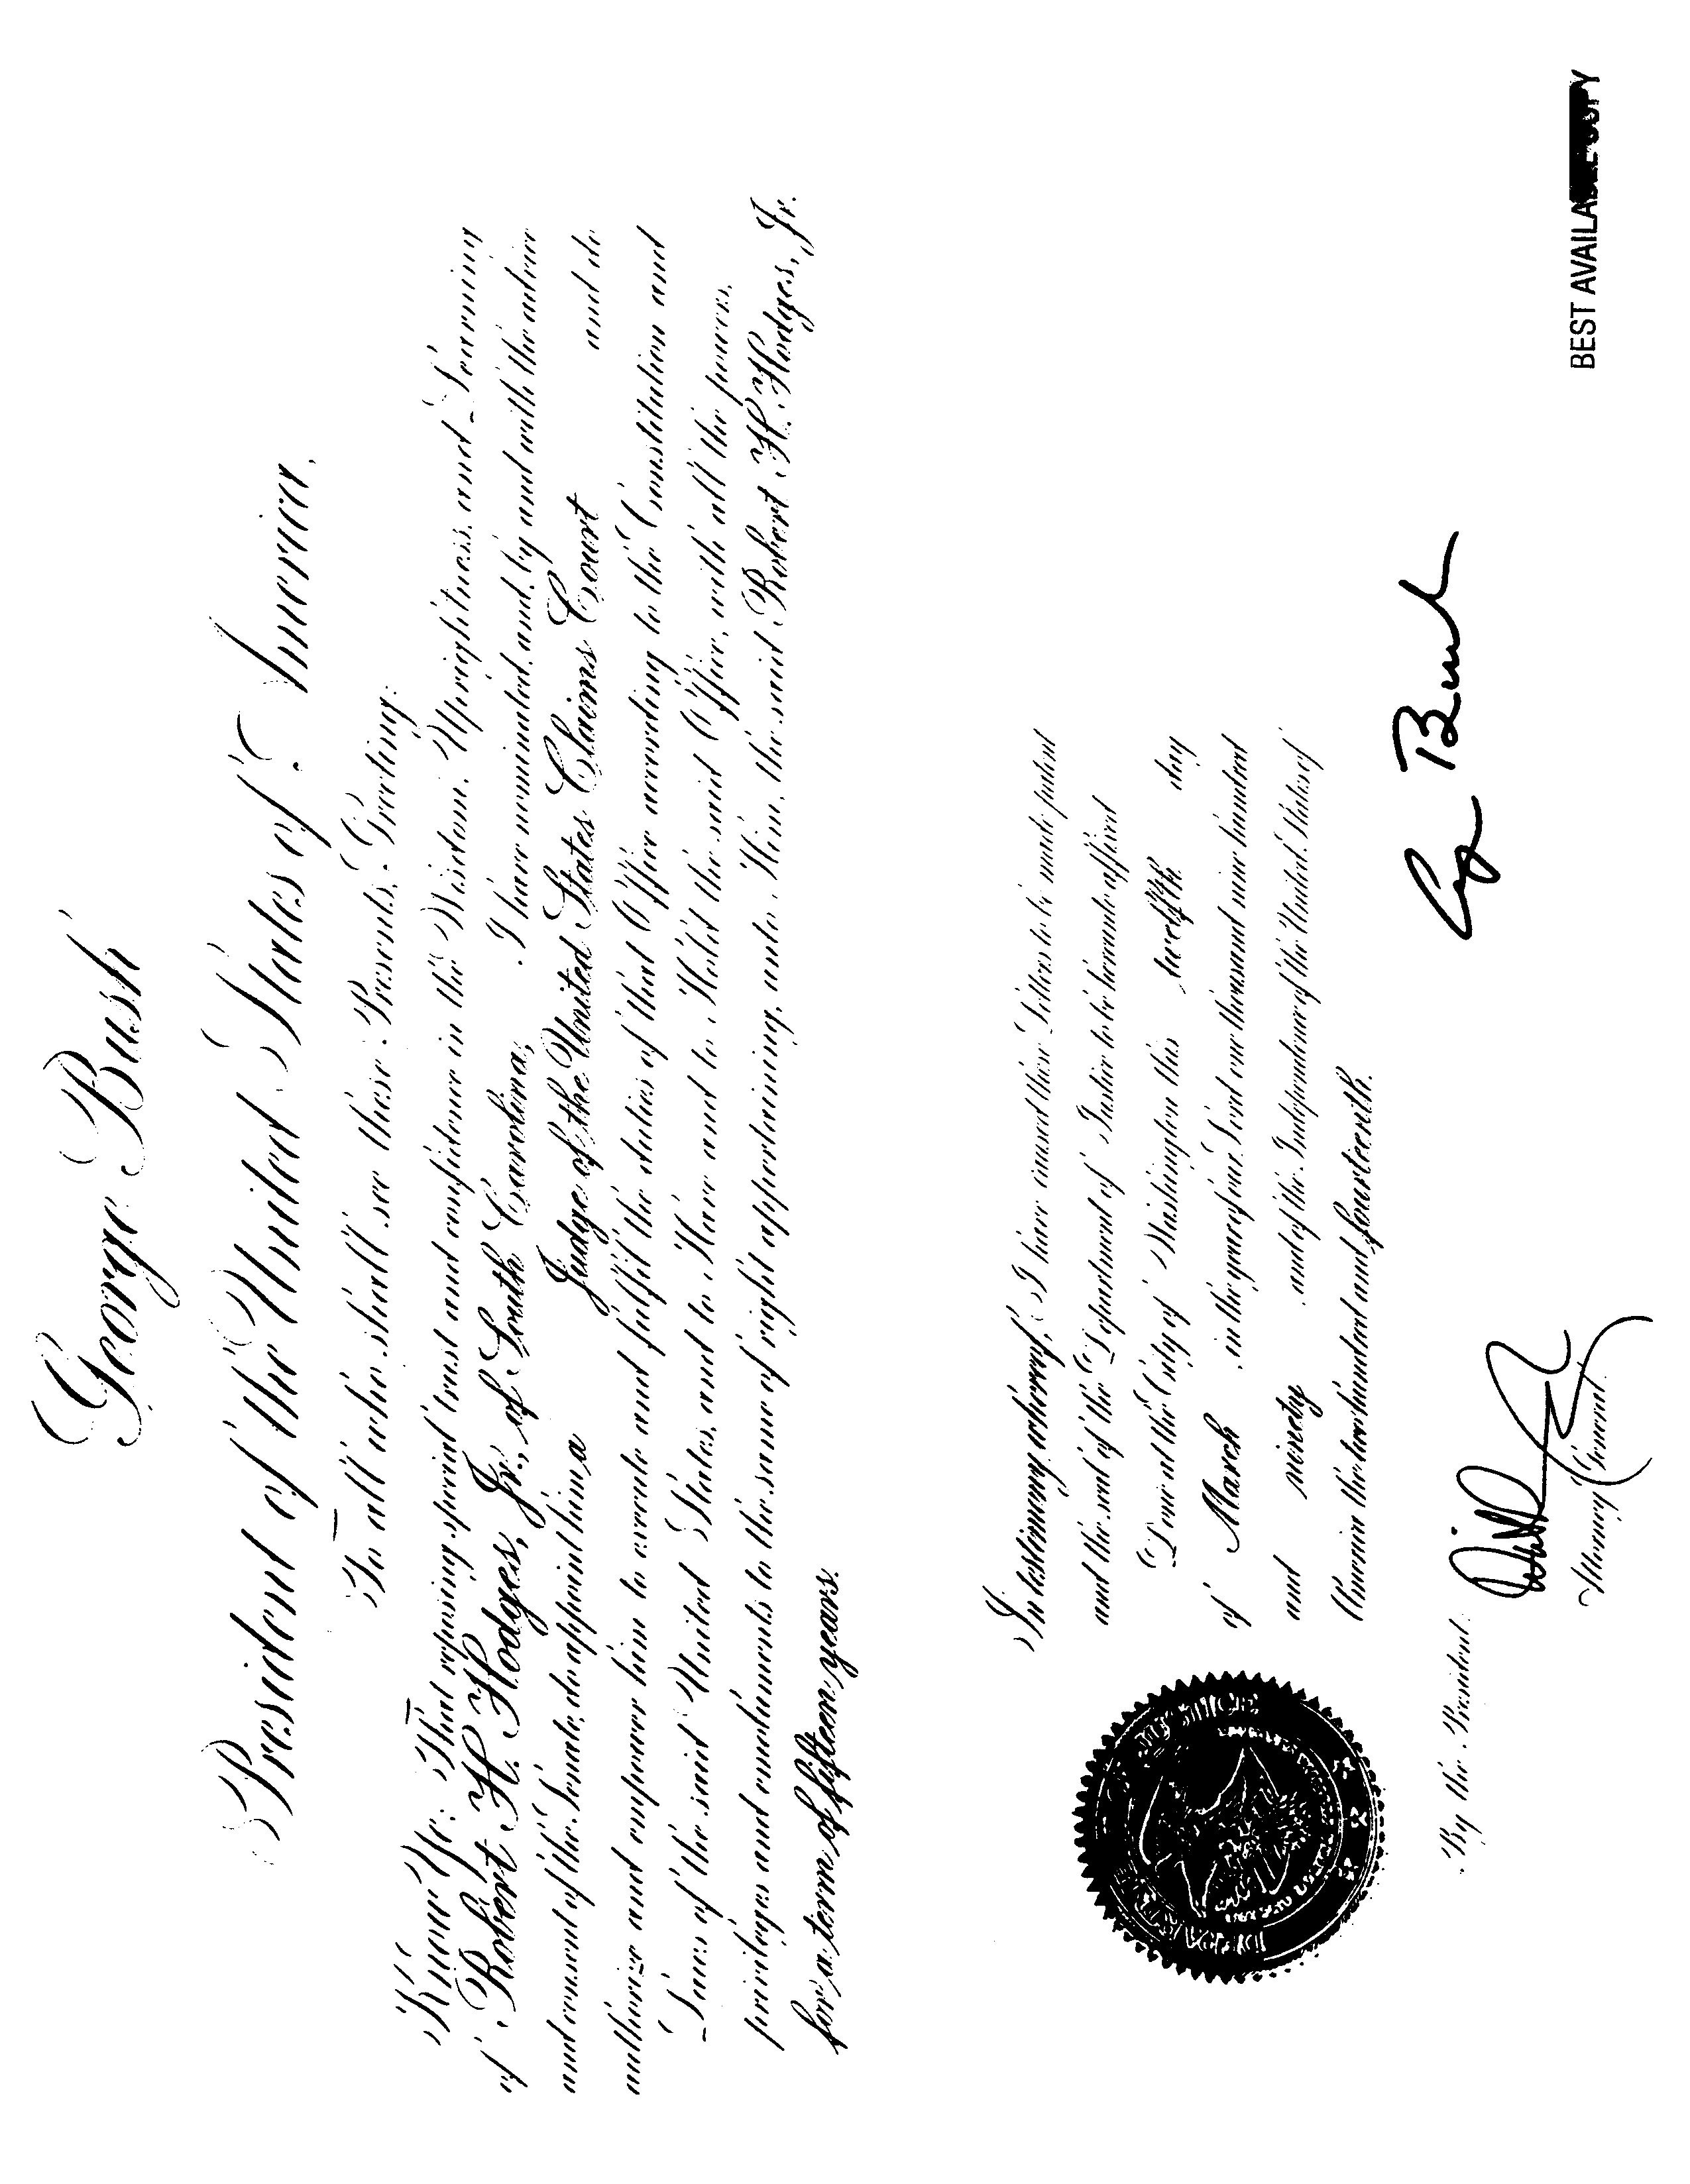 George Bush
President of the United States of America,
To all who shall see these Presents, Greeting:
Know Ye: That reposing special trust and confidence in the Wisdom, Uprightness, and Learning
of Robert H. Hodges, Jr., of South Carolina, I have nominated, and, by and with the advice
and consent of the Senate, do appoint him a Judge of the United States Claims Court and do
authorize and empower him to execute and fulfil the duties of that Office according to the Constitution and
Laws of the said United States, and to Have and to Hold the said Office, with all the powers,
privileges and emoluments to the same of right appertaining, unto Him, the said Robert H. Hodges, Jr.
for a term of fifteen years.
In testimony whereof, I have caused these Letters to be made patent
and the seal of the Department of Justice to be hereunto affixed
Done at the City of Washington this twelfth day
of March in the year of our Lord one thousand nine hundred
and ninety and of the Independence of the United States of
America the two hundred and fourteenth.
G Bush
By the President:
Attorney General.
BEST AVAILABLE COPY